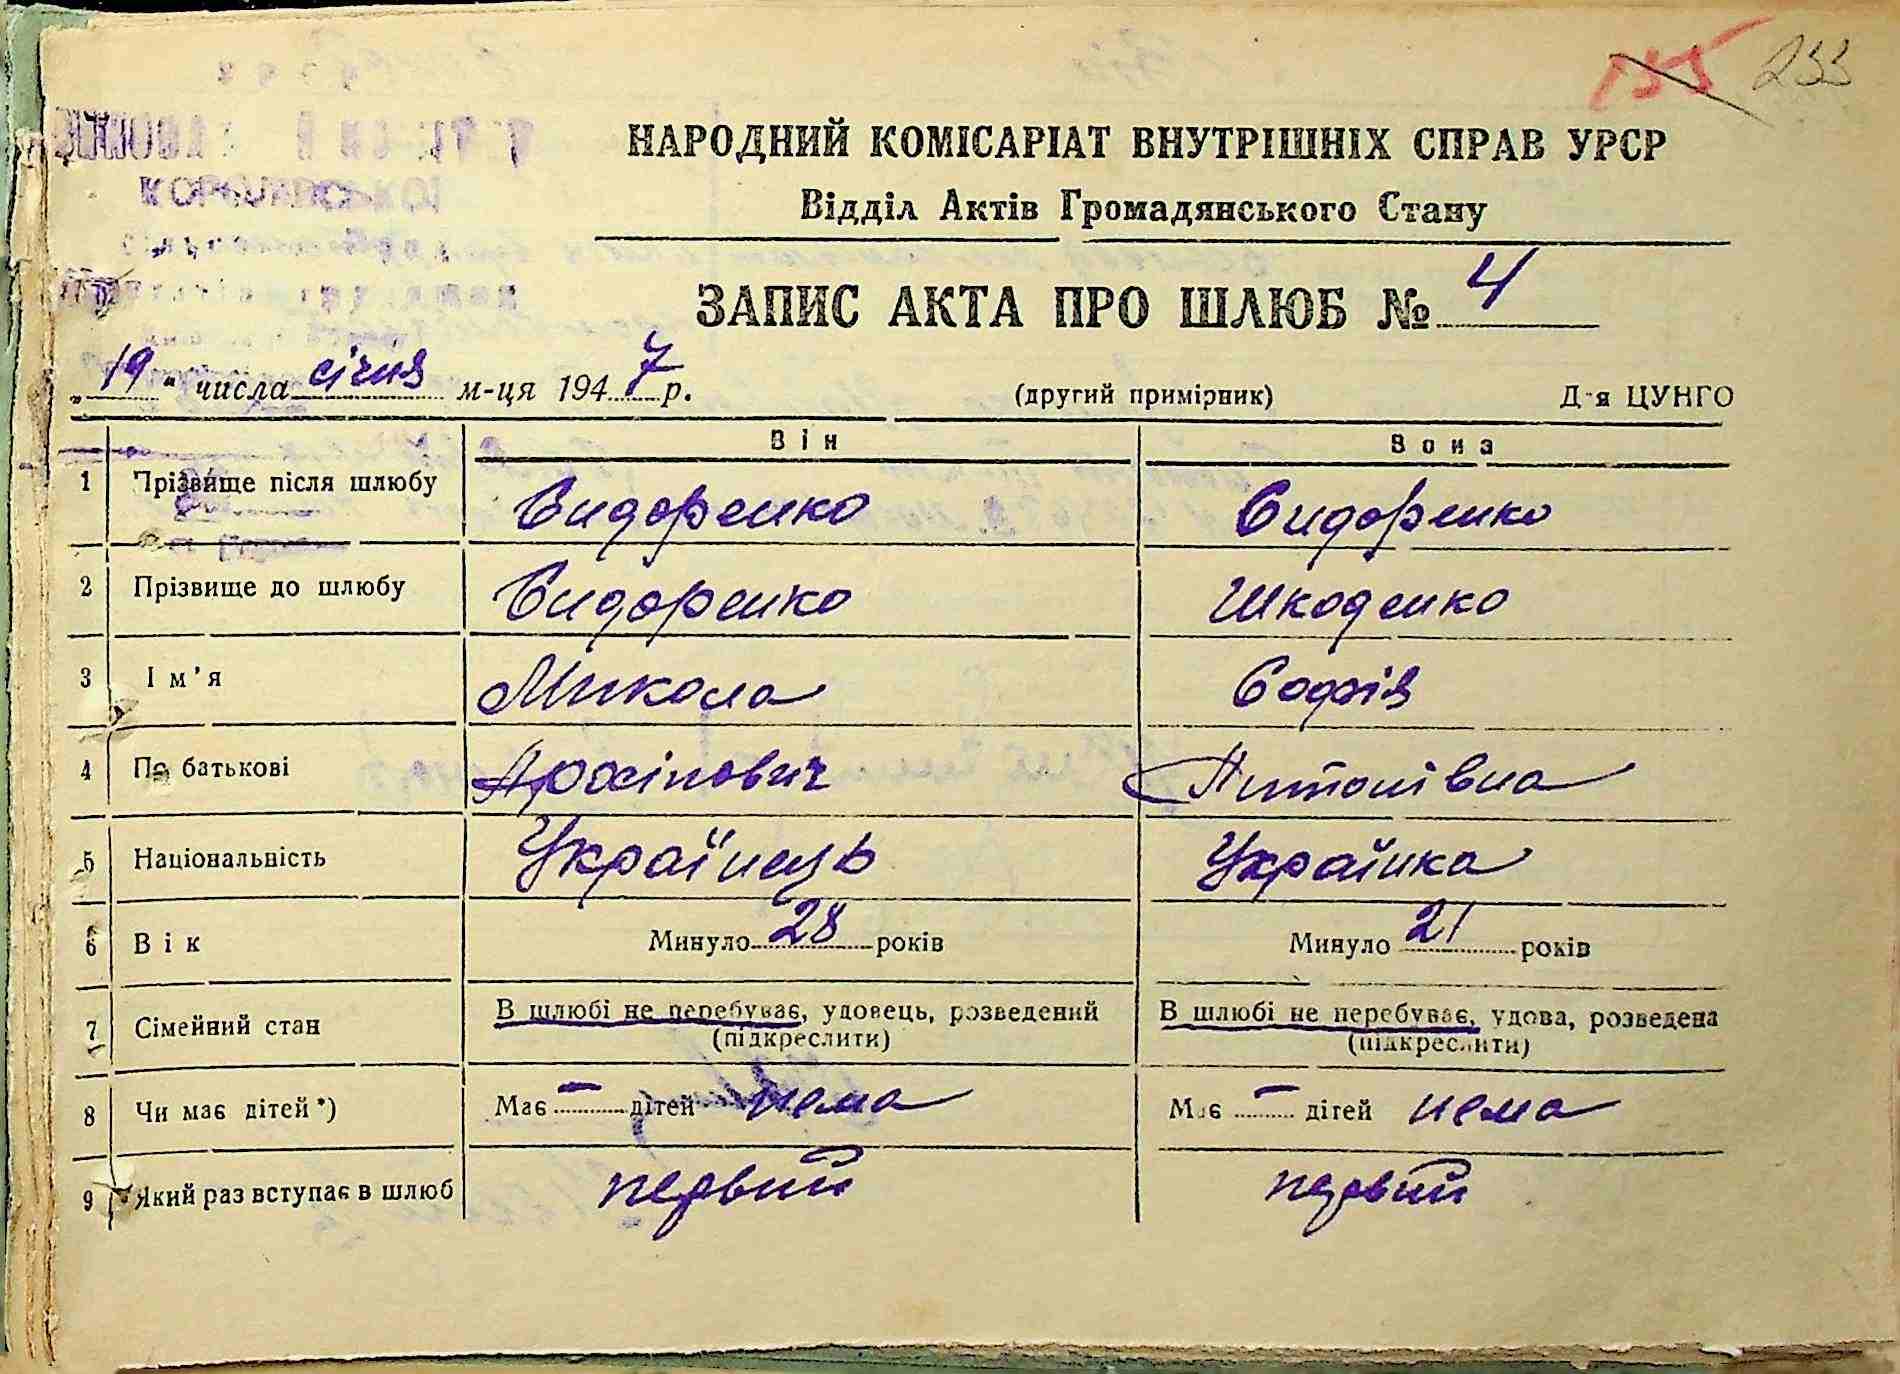 155 233
НАРОДНИЙ КОМІСАРІАТ ВНУТРІШНІХ СПРАВ УРСР
Відділ Актів Громадянського Стану
ЗАПИС АКТА ПРО ШЛЮБ № 4
„19" числа січня м-ця 1947 р. (другий примірник) Д-я ЦУНГО
Він Вона
1 Прізвище після шлюбу Сидоренко Сидоренко
2 Прізвище до шлюбу Сидоренко Шкоденко
3 Ім'я Микола Софія
4 По батькові Архіпович Антонівна
5 Національність Українець Українка
6 Вік Минуло 28 років Минуло 21 років
7 Сімейний стан В шлюбі не перебуває, удовець, розведений (підкреслити) В шлюбі не перебуває, удова, розведена (підкреслити)
8 Чи має дітей*) Має — дітей нема Має — дітей нема
9 Який раз вступає в шлюб первий первий